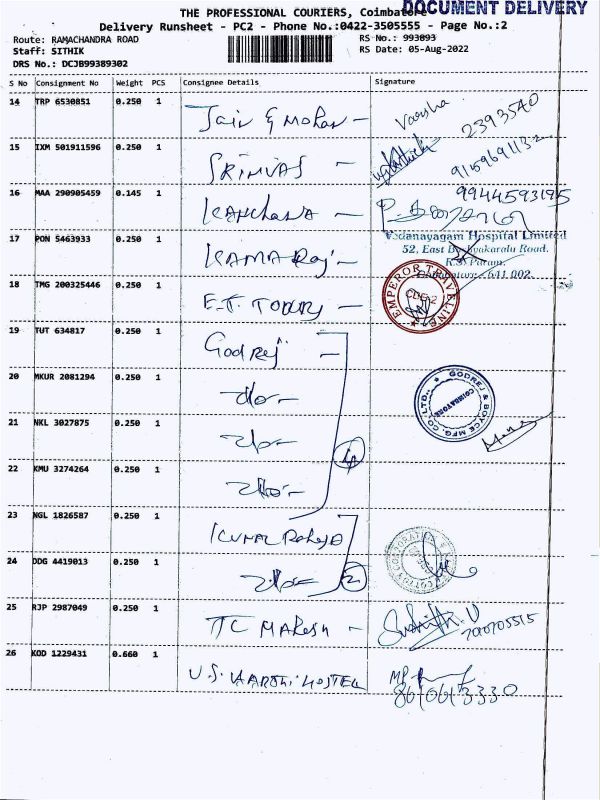 THE PROFESSIONAL COURIERS, Coimbatore
DOCUMENT DELIVERY
Delivery Runsheet - PC2 - Phone No.:0422-3505555 - Page No.:2
Route: RAMACHANDRA ROAD
RS No.: 993093
Staff: SITHIK
RS Date: 05-Aug-2022
DRS No.: DCJB99389302
S No Consignment No Weight PCS Consignee Details Signature
14 TRP 6530851 0.250 1 Jain & Mohan - Varsha 2393540
15 IXM 501911596 0.250 1 SRINIVAS -
16 MAA 290905459 0.145 1 KANCHANA - 9944593195
17 PON 5463933 0.250 1 KAMARaj -
Vedanayagam Hospital Limited
52, East Bashyakaralu Road.
R.S. Puram,
Coimbatore - 641 002.
18 TMG 200325446 0.250 1 E.T. TODAY -
EMPEROR TRAVELINE
CBE-2
19 TUT 634817 0.250 1 Godrej -
20 MKUR 2081294 0.250 1 -do-
GODREJ & BOYCE MFG. CO. LTD.,
COIMBATORE
21 NKL 3027875 0.250 1 -do-
22 KMU 3274264 0.250 1 -do-
4
23 NGL 1826587 0.250 1
24 DDG 4419013 0.250 1 -do- 2
COTTON CORPORATION
25 RJP 2987049 0.250 1 TC MAhesh -
26 KOD 1229431 0.660 1 HOSTEL